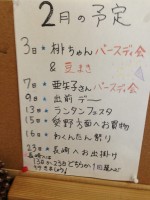 2月の予定
3日★梅ちゃんバースディ会
&豆まき
7日★亜矢子さんバースディ会
9日★出前デー
13日★ランタンフェスタ
15日★愛野方面へお買物
16日★わくんたん祭り
23日★長崎へお出掛け